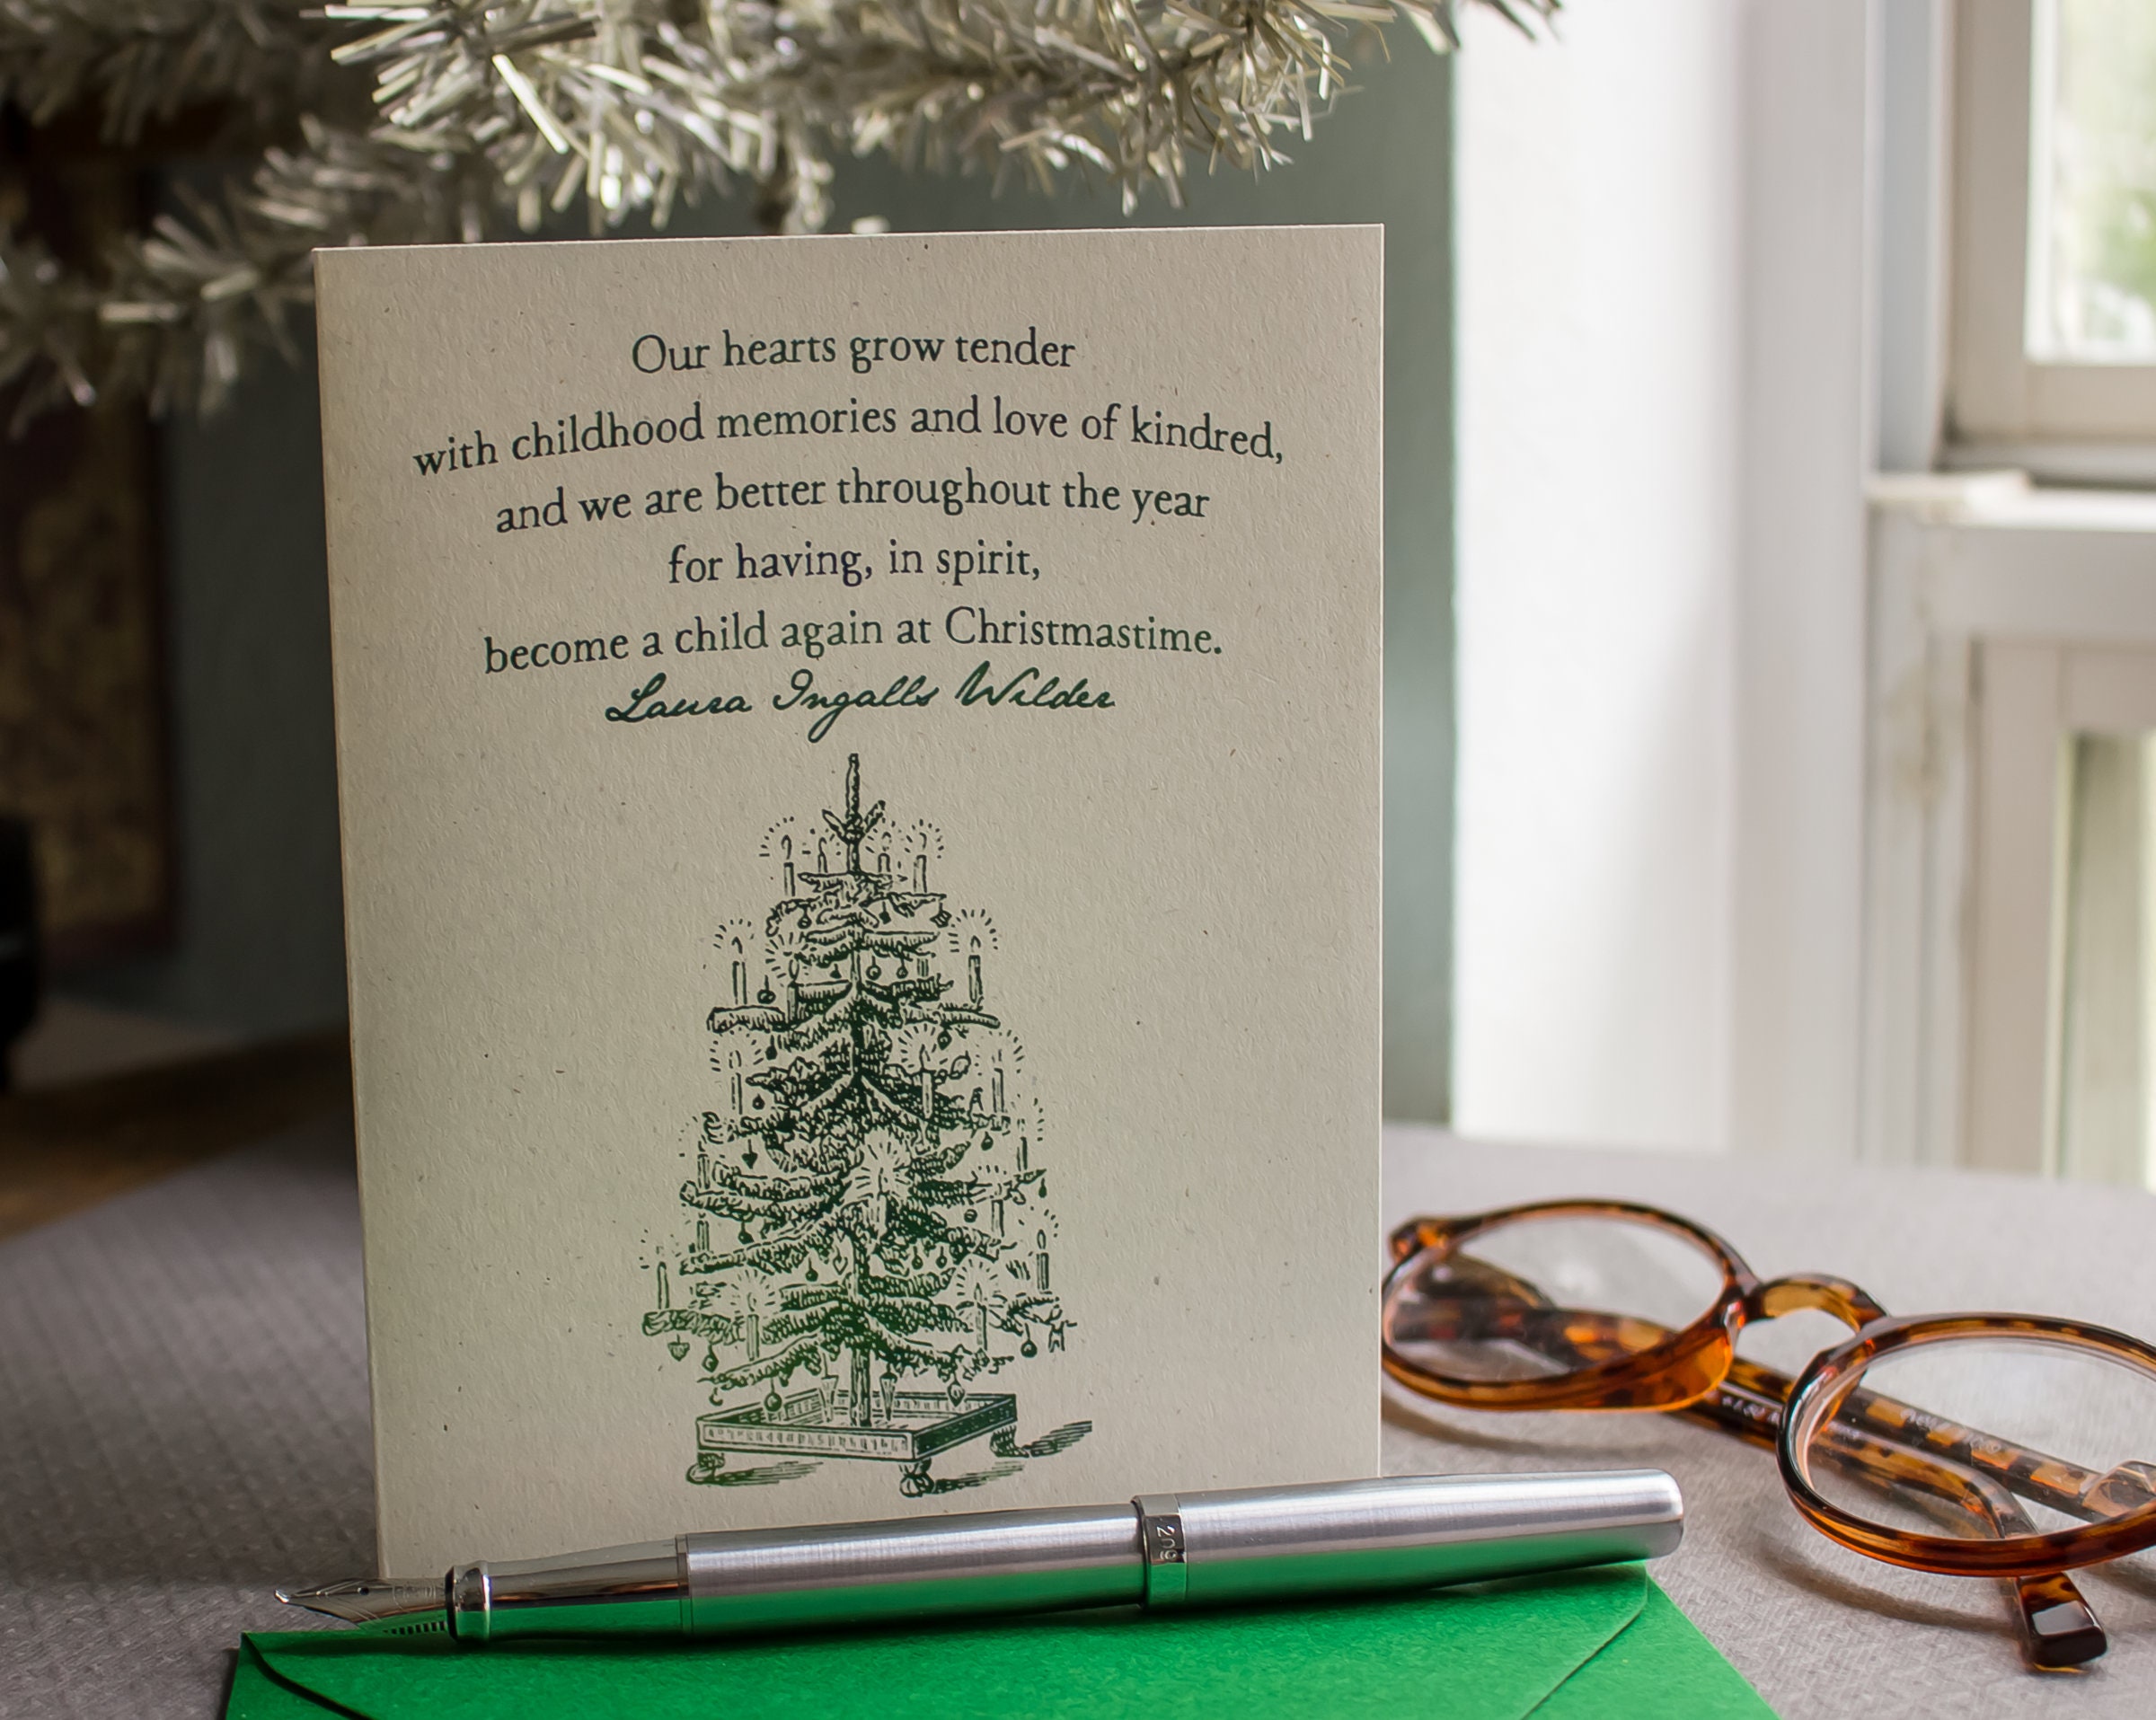 Our hearts grow tender
with childhood memories and love of kindred,
and we are better throughout the year
for having, in spirit,
become a child again at Christmastime.
Laura Ingalls Wilder